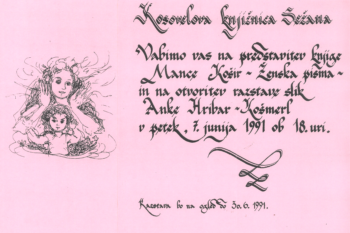 Kosovelova knjižnica Sežana
Vabimo vas na predstavitev knjige
Mance Košir - Ženska pisma -
in na otvoritev razstave slik
Anke Hribar - Košmerl
v petek, 7. junija 1991 ob 18. uri.
Razstava bo na ogled do 30.6.1991.